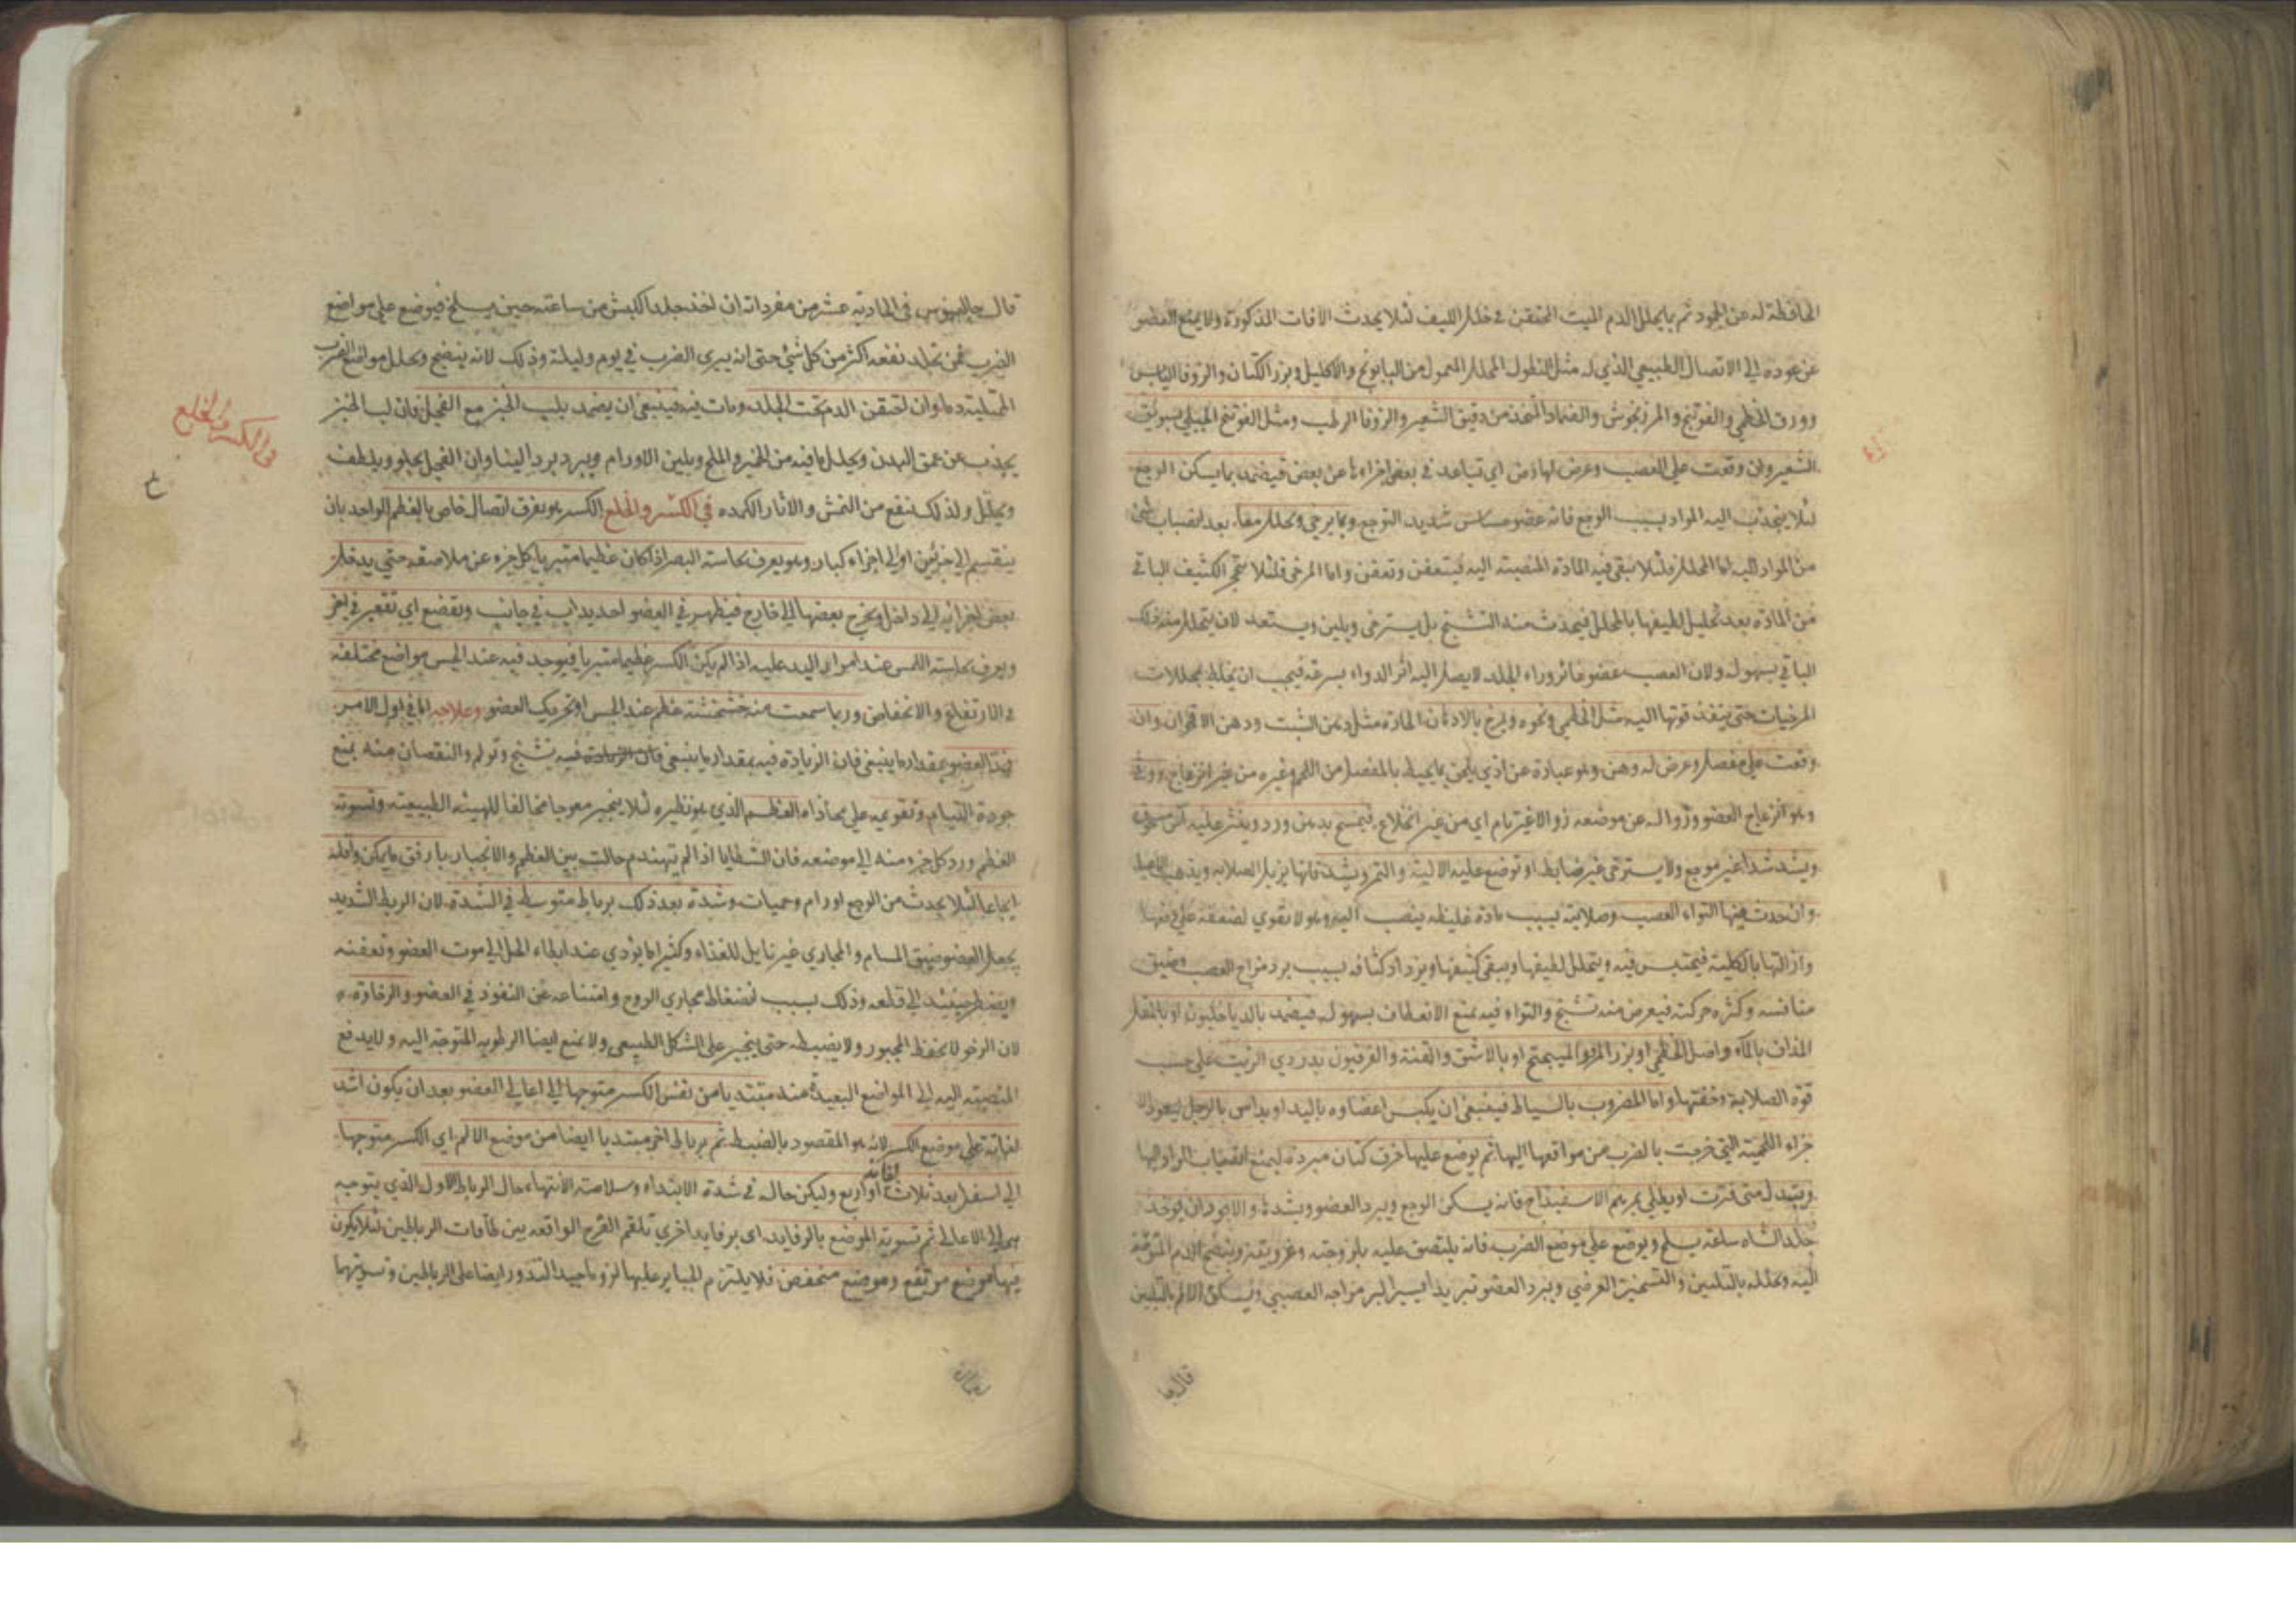 الحافظة له عن الجمود ثم بما يحلل الدم الميت المحتقن في خلل الليف لئلا يحدث الافات المذكورة ولا يمنع العضو
عن عوده الى الاتصال الطبيعي الذي له مثل النطول المحلل المعمول من البابونج والاكليل وبزر الكتان والزوفا اليابس
وورق الخطمي والفوتنج والمرزنجوش والضماد المتخذ من دقيق الشعير والزوفا الرطب ومثل الفوتنج الجبلي بسويق
الشعير وان وقعت على العصب وعرض لها رض اي تباعد في بعض اجزاءها عن بعض فيضمد بما يسكن الوجع
لئلا ينجذب اليه المواد بسبب الوجع فانه عضو حساس شديد التوجع وبما يرخي ويحلل معا بعد انصباب شئ
من المواد اليه اما المحلل فلئلا تبقى فيه المادة المنصبة اليه فيتعفن وتعفن واما المرخي فلئلا يتحجر الكثيف الباقي
من المادة بعد تحليل لطيفها بالمحلل فيحدث منه التشنج بل يسترخي ويلين ويستعد لان يتحلل منه ذلك
الباقي بسهولة ولان العصب عضو غائر وراء الجلد لا يصل اليه اثر الدواء بسرعة فيجب ان يخلط بمحللات
المرخيات حتى ينفذ قوتها اليه مثل الخطمي ونحوه ويمرخ بالادهان الحارة مثل دهن الشبت ودهن الاقحوان وان
وقعت على مفصل وعرض له وهن وهو عبارة عن اذى يلحق بما يحيط بالمفصل من اللحم وغيره من غير انزعاج ووثى
وهو انزعاج العضو وزواله عن موضعه زوالا غير تام اي من غير انخلاع فيمسح بدهن ورد وينثر عليه آس مسحوق
ويشد شدا غير موجع ولا يسترخي غير ضابط او توضع عليه الالية والتمر ويشد فانها يزيل الصلابة ويذهب
وان حدث فيها التواء العصب وصلابته بسبب مادة غليظة ينصب اليه وهو لا يقوى لضعفه على دفعها
وازالتها بالكلية فيحتبس فيه ويتحلل لطيفها ويبقى كثيفها ويزداد كثافة بسبب برد مزاج العصب وضيق
منافسه وكثرة حركته فيعرض منه تشنج والتواء فيه يمنع الانعطاف بسهولة فيضمد بالدياخليون او بالمقل
المذاف بالماء واصل الخطمي او بزر المرو بالميبختج او بالاشق والقنة والفرفيون بدردي الزيت على حسب
قوة الصلابة وخفتها واما المضروب بالسياط فينبغي ان يكبس اعضاوه باليد او يداس بالرجل ليعود الا
جزاء اللحمية التي خرجت بالضرب من مواقعها اليها ثم يوضع عليها خرق كتان مبردة ليمنع انصباب المواد اليها
ويتبدل متى فترت او يطلى بمرهم الاسفيداج فانه يسكن الوجع ويبرد العضو ويشده والاجود ان يوخذ
جلد الشاه ساعة يسلخ ويوضع على موضع الضرب فانه يلتصق عليه بلزوجته وغرويته وينضج الدم
اليه ويحلله بالتليين والتسخين العرضي ويبرد العضو تبريدا يسيرا لبرد مزاجه العصبي ويسكن الالم بالتليين
قال جا
قال جالينوس في الحادية عشر من مفرداته ان اخذ جلد الكبش من ساعته حين يسلخ فيوضع على مواضع
الضرب ممن تجلد نفعه اكثر من كل شئ حتى انه يبرى الضرب في يوم وليلة وذلك لانه ينضج ويحلل مواضع الضرب
الممتلية دما وان احتقن الدم تحت الجلد ومات فيه فينبغي ان يضمد بلب الخبز مع الفجل فان لب الخبز
يجذب من عمق البدن ويحلل ما فيه من الخمير والملح ويلين الاورام ويبرد بردا لينا وان الفجل يجلو ويلطف
ويحلل ولذلك ينفع من النمش والاثار الكمده في الكسر والخلع الكسر هو تفرق اتصال خاص بالعظم الواحد بان
ينقسم الى جزئين او الى اجزاء كبار وهو يعرف بحاسة البصر اذا كان عظيما متبريا كل جزء عن ملاصقه حتى يدخل
بعض اجزائه الى داخل ويخرج بعضها الى خارج فيظهر في العضو احديداب في جانب وتقصع اي تقعير في اخر
ويعرف بحاسة اللمس عند امرار اليد عليه اذا لم يكن الكسر عظيما متبريا فيوجد فيه عند الجس مواضع مختلفة
في الارتفاع والانخفاض وربما سمعت منه خشخشة عظم عند الجس او تحريك العضو وعلاجه اما في اول الامر
فمد العضو بمقدار ما ينبغي فان الزيادة فيه بمقدار ما ينبغي فيه تشنج وتولم والنقصان منه يمنع
جودة التيام وتقويمه على محاذاة العظم الذي هو نظيره لئلا ينجبر معوجا مخالفا للهيئة الطبيعية وتسوية
العظم ورد كل جزء منه الى موضعه فان الشظايا اذا لم تهندم حالت بين العظم والانجبار بارفق ما يمكن واقله
ايجاعا لئلا يحدث من الوجع اورام وحميات وشدة بعد ذلك برباط متوسط في الشدة لان الربط الشديد
يجعل العضو ضيق المسام والمجاري غير نايل للغذاء وكثيرا ما يؤدي عند ابطاء الحل الى موت العضو وتعفنه
ويضطر حينئذ الى قطعه وذلك بسبب انضغاط مجاري الروح وامتناعه عن النفوذ في العضو والرخاوة
لان الرخو لا يحفظ المجبور ولا يضبطه حتى ينجبر على الشكل الطبيعي ولا يمنع ايضا الرطوبة المتوجهة اليه ولا يدفع
المنصبة اليه الى المواضع البعيدة منه مبتديا من نفس الكسر متوجها الى اعالي العضو بعد ان يكون اشد
لفاته على موضع الكسر لانه هو المقصود بالضبط ثم برباط اخر مبتديا ايضا من موضع الالم اي الكسر متوجها
الى اسفل بعد ثلاث لفات او اربع وليكن حاله في شدة الابتداء وسلاسة الانتهاء حال الرباط الاول الذي يتوجه
الى الاعالي ثم تسوية الموضع بالرفايد اي برفايد اخرى تلقم الفرج الواقعة بين طاقات الرباطين لئلا يكون
فيها موضع مرتفع وموضع منخفض فلا يلتزم الجباير عليها لزوما جيدا لتدور ايضا على الرباطين وتسويتهما
في الكسر والخلع